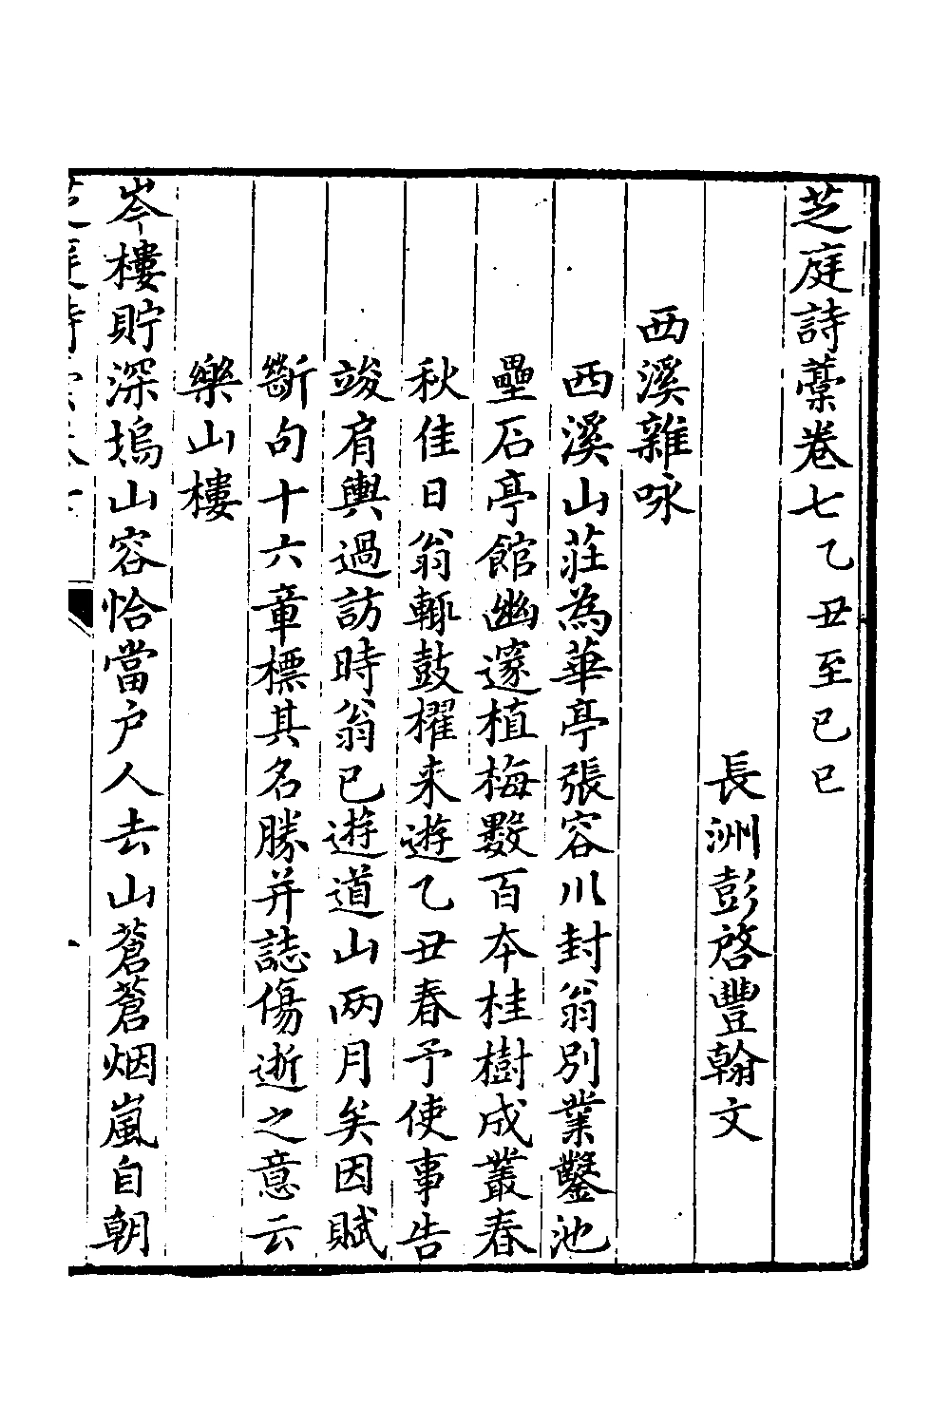 芝庭詩藁卷七乙丑至己巳
長洲彭啓豐翰文
西溪雜咏
西溪山莊為華亭張容川封翁別業鑿池
壘石亭館幽邃植梅數百本桂樹成叢春
秋佳日翁輒鼓櫂来遊乙丑春予使事告
竣肩輿過訪時翁已遊道山兩月矣因賦
斷句十六章標其名勝并誌傷逝之意云
樂山樓
岑樓貯深塢山容恰當户人去山蒼蒼烟嵐自朝